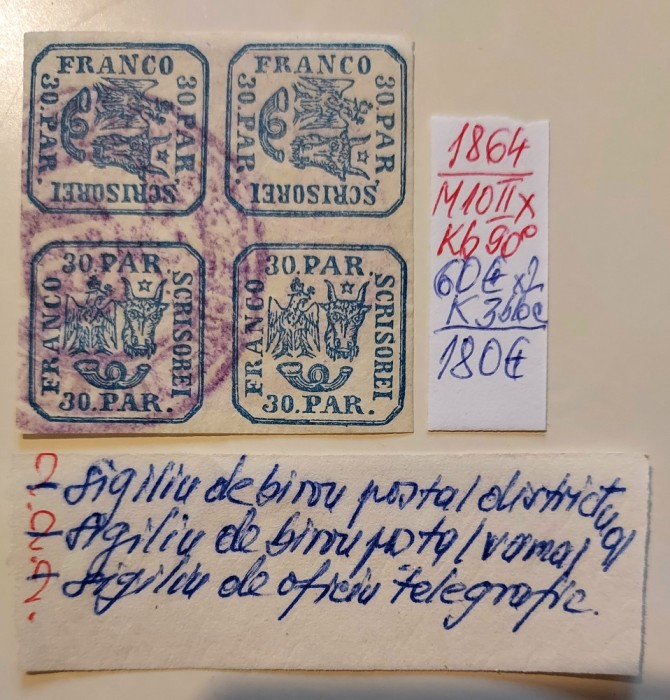 FRANCO
30.PAR.
30 PAR.
SCRISOREI
FRANCO
30.PAR.
30 PAR.
SCRISOREI
30.PAR.
FRANCO
SCRISOREI
30.PAR.
30.PAR.
FRANCO
SCRISOREI
30.PAR.
1864
M10IIx
Kb 90°
60€x2
180€
? - Sigiliu de birou postal districtual
? - Sigiliu de birou postal vamal
? - Sigiliu de oficiu telegrafic.